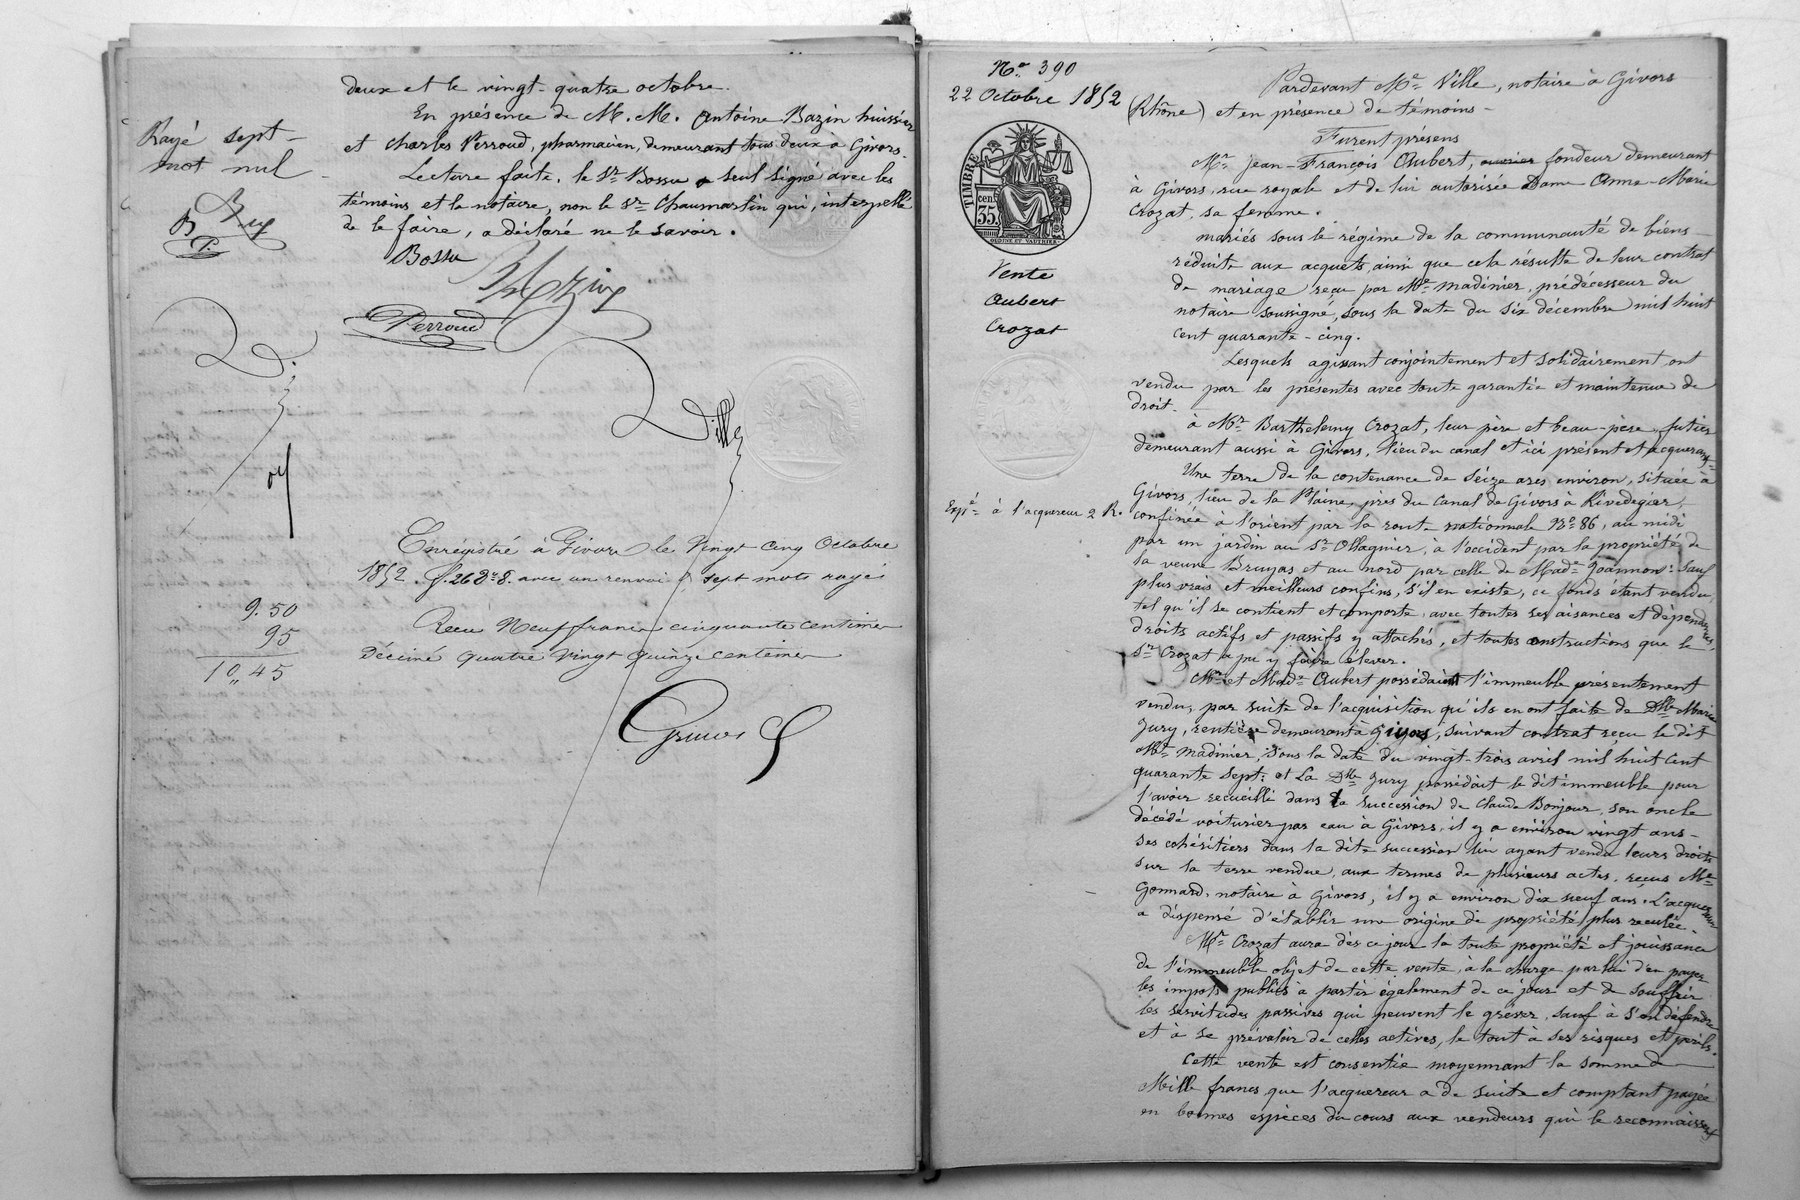 deux et le vingt-quatre octobre.
En présence de M.M. Antoine Bazin huissier
et Charles Perroud, pharmacien, demeurant tous deux à Givors.
Lecture faite, le Sr Bossu a seul signé avec les
témoins et le notaire, non le Sr Chaumartin qui, interpellé
de le faire, a déclaré ne le savoir.
Rayé sept
mot nul
B
P.
Bossu
Bazin
Perroud
Ville
Enrégistré à Givors le Vingt cinq Octobre
1852. f. 26 Vo 8. avec un renvoi & sept mots rayés
Recu Neuf francs cinquante centimes
Décime quatre vingt quinze centimes
9.50
95
10,,45
No 390
22 Octobre 1852
TIMBRE
35 cen.
Vente
Aubert
Crozat
Expé à l'acquereur 2 R.
Pardevant Me Ville, notaire à Givors
(Rhône) et en présence de témoins
Furent présens
Mr Jean-François Aubert, ouvrier fondeur demeurant
à Givors, rue royale et de lui autorisée Dame Anne-Marie
Crozat, sa femme.
mariés sous le régime de la communauté de biens
réduite aux acquets, ainsi que cela résulte de leur contrat
de mariage reçu par Me Madinier, prédécesseur du
notaire soussigné, sous la date du six décembre mil huit
cent quarante-cinq.
Lesquels agissant conjointement et solidairement ont
vendu par les présentes avec toute garantie et maintenue de
droit.
à Mr Barthelemy Crozat, leur père et beau-père, futier
demeurant aussi à Givors, lieu du canal et ici présent et acquerant
Une terre de la contenance de seize ares environ, située à
Givors, lieu de la Plaine, près du Canal de Givors à Rivedegier,
confinée à l'orient par la route nationnale No 86, au midi
par un jardin au Sr Ollagnier, à l'occident par la propriété de
la veuve Bruyas et au nord par celle de Made Joannon: sauf
plus vrais et meilleurs confins, s'il en existe, ce fonds étant vendu
tel qu'il se contient et comporte avec toutes ses aisances et dépendances,
droits actifs et passifs y attachés, et toutes constructions que le
Sr Crozat a pu y faire élever.
Mr et Made Aubert possédaient l'immeuble présentement
vendu, par suite de l'acquisition qu'ils en ont faite de Dlle Marie
Jury, rentière demeurant à Givors, suivant contrat reçu le dit
Me Madinier, sous la date du vingt-trois avril mil huit cent
quarante sept: et la Dlle Jury possédait le dit immeuble pour
l'avoir recueilli dans la succession de Claude Bonjour, son oncle
décédé voiturier par eau à Givors, il y a environ vingt ans
ses cohéritiers dans la dite succession lui ayant vendu leurs droits
sur la terre vendue, aux termes de plusieurs actes, reçus Me
Gonnard, notaire à Givors, il y a environ dix neuf ans. L'acquereur
a dispensé d'établir une origine de propriété plus reculée.
Mr Crozat aura dès ce jour la toute propriété et jouissance
de l'immeuble objet de cette vente, à la charge par lui d'en payer
les impots publics à partir également de ce jour et de souffrir
les servitudes passives qui peuvent le gréver, sauf à s'en défendre
et à se prévaloir de celles actives, le tout à ses risques et perils.
Cette vente est consentie moyennant la somme de
Mille francs que l'acquereur a de suite et comptant payée
en bonnes espèces du cours aux vendeurs qui le reconnaissent